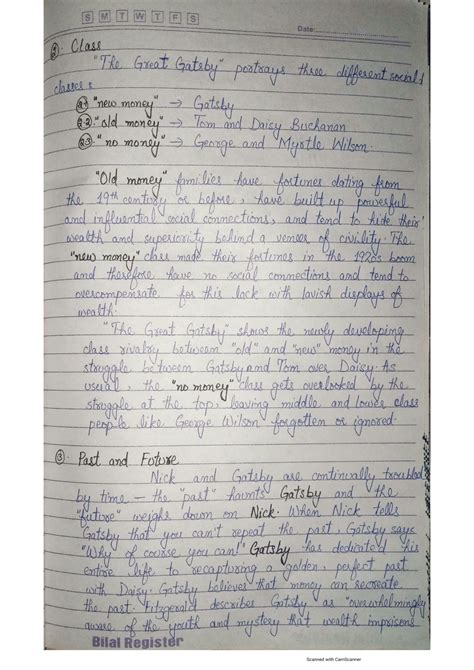 S M T W T F S
Date:
②. Class
"The Great Gatsby" portrays three different social
classes :
2.1. "new money" → Gatsby
2.2. "old money" → Tom and Daisy Buchanan
2.3. "no money" → George and Myrtle Wilson.
"Old money" families have fortunes dating from
the 19th century or before, have built up powerful
and influential social connections, and tend to hide their
wealth and superiority behind a veneer of civility. The
"new money" class made their fortunes in the 1920s boom
and therefore have no social connections and tend to
overcompensate for this lack with lavish displays of
wealth.
"The Great Gatsby" shows the newly developing
class rivalry between "old" and "new" money in the
struggle between Gatsby and Tom over Daisy. As
usual, the "no money" class gets overlooked by the
struggle at the top, leaving middle and lower class
people like George Wilson forgotten or ignored.
③ Past and Future
Nick and Gatsby are continually troubled
by time — the "past" haunts Gatsby and the
"future" weighs down on Nick. When Nick tells
Gatsby that you can't repeat the past, Gatsby says
"Why of course you can!" Gatsby has dedicated his
entire life to recapturing a golden, perfect past
with Daisy. Gatsby believes that money can recreate
the past. Fitzgerald describes Gatsby as "overwhelmingly
aware of the youth and mystery that wealth imprisons
Bilal Register
Scanned with CamScanner